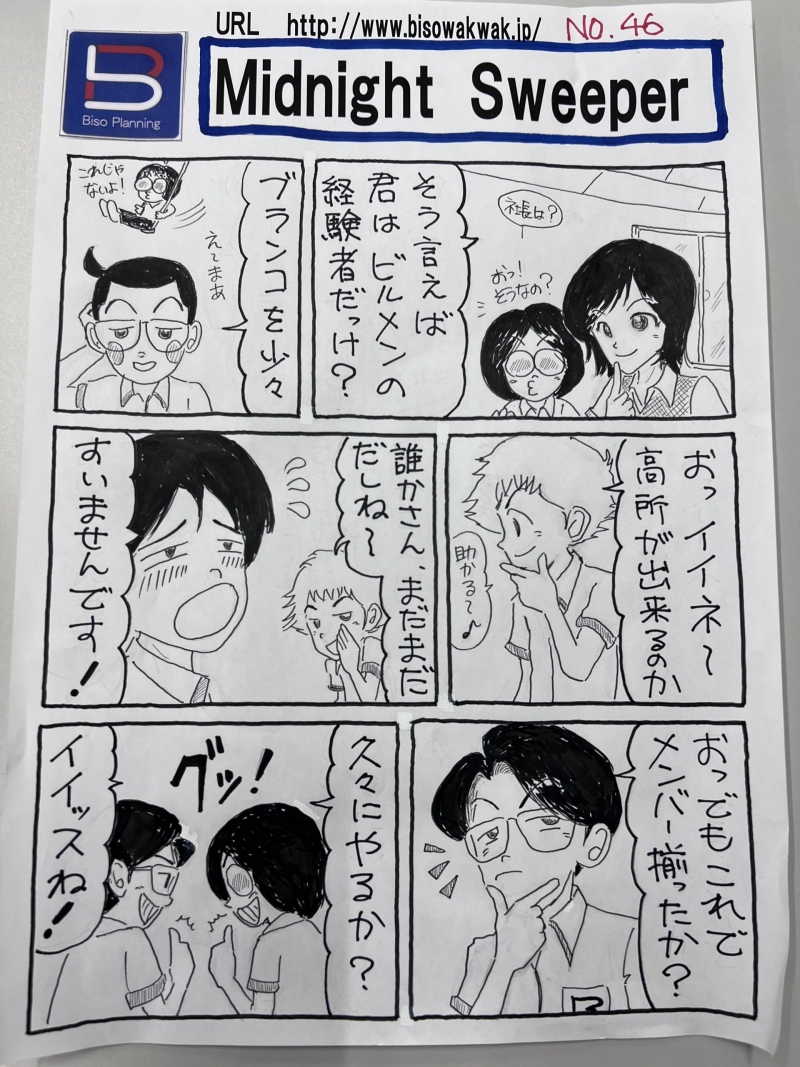 URL http://www.bisowakwak.jp/ NO.46
Biso Planning
Midnight Sweeper
そう言えば
君はビルメンの
経験者だっけ?
社長は?
おっ!
そうなの?
ブランコを少々
えぇまあ
これじゃ
ないよ!
おっイイネ〜
高所が出来るのか
助かる〜♪
誰かさん、まだまだ
だしね〜
すいませんです!
おっでもこれで
メンバー揃ったか?
久々にやるか?
グッ!
イイッスね!